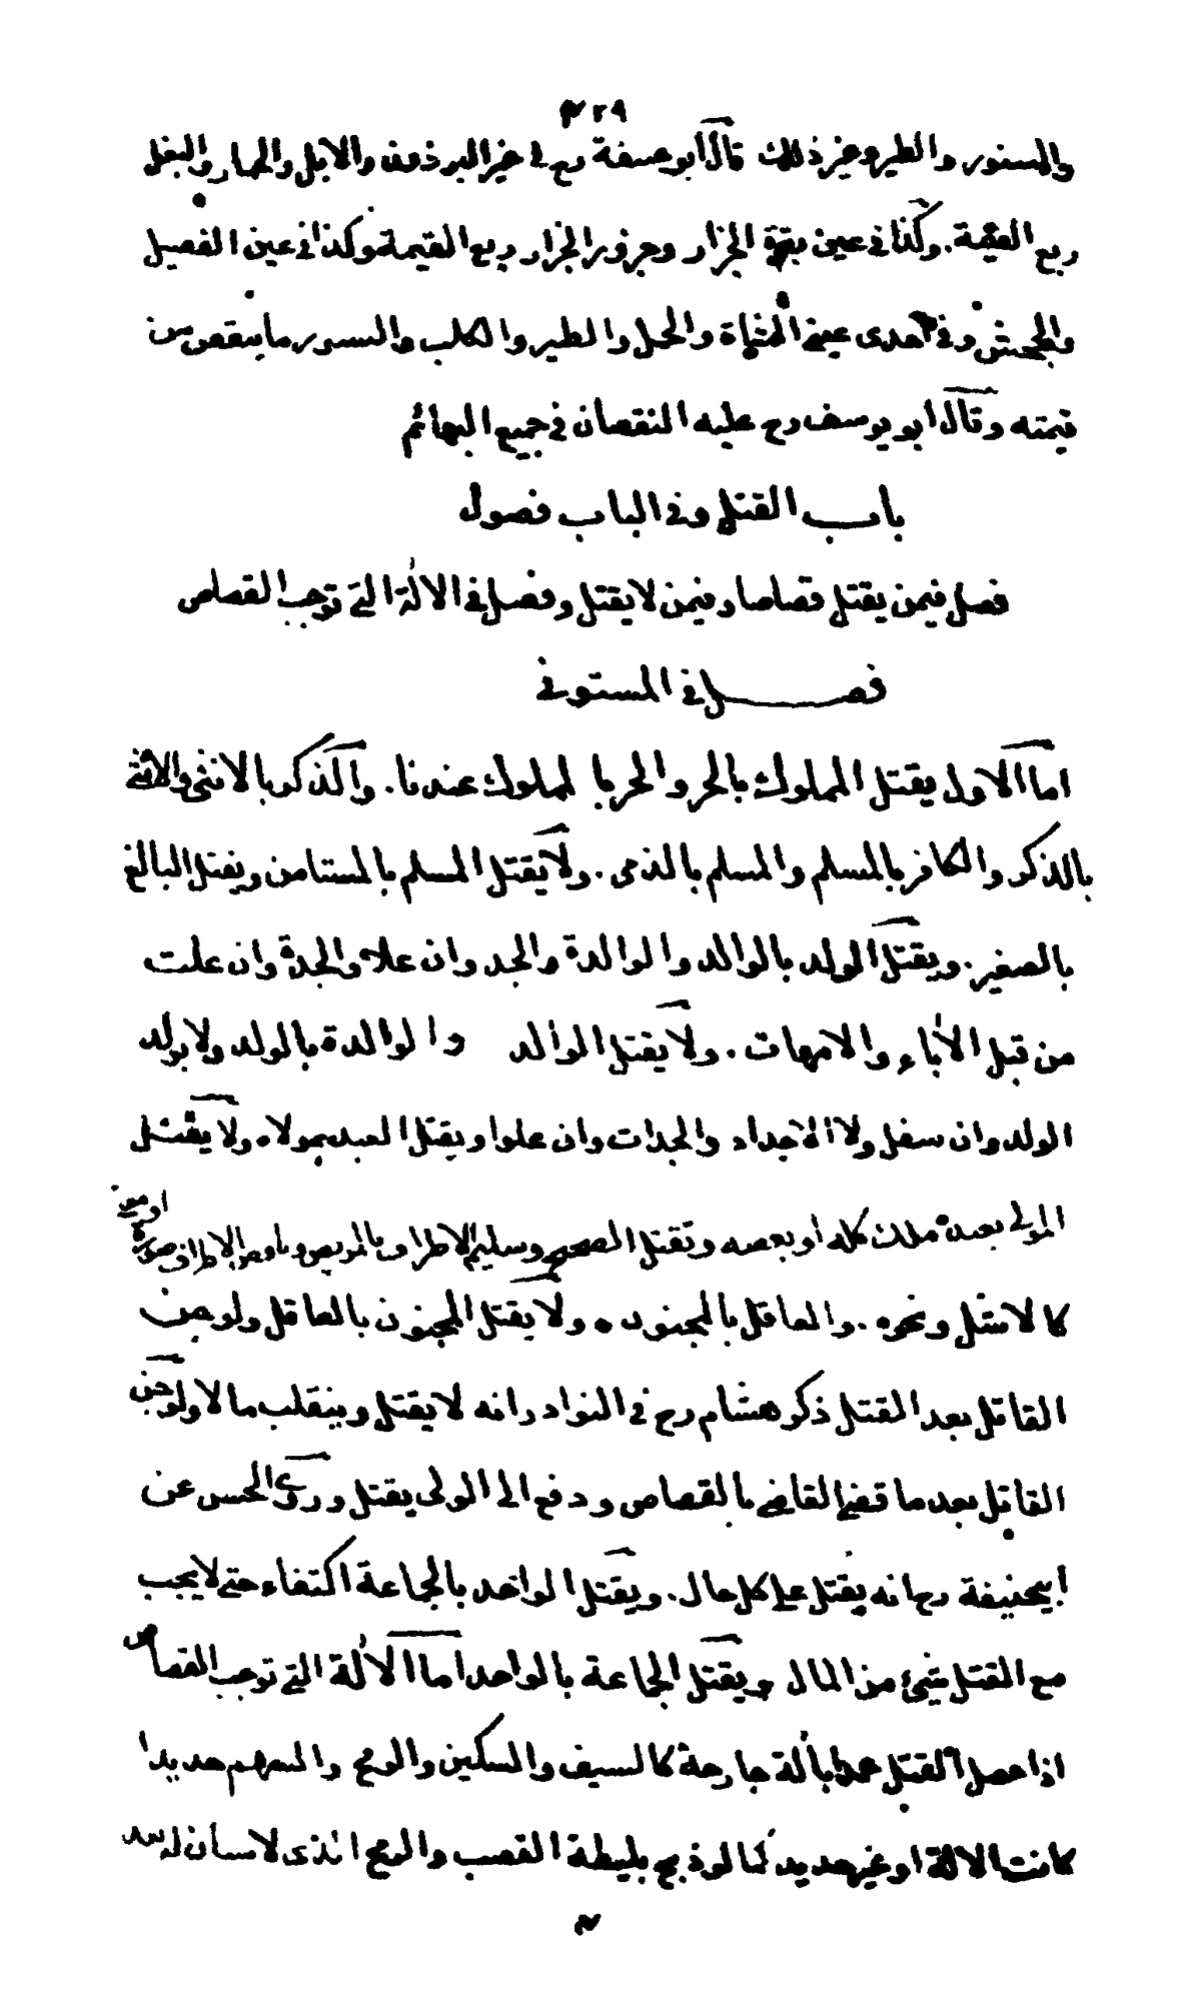 ٣٢٩
والسنور والطير وغير ذلك قال ابو حنيفة رح في غير البرذون والابل والحمار والبغل
ربع القيمة. وكذا في عين بقرة الجزار وجزور الجزار ربع القيمة وكذا في عين الفصيل
والجحش وفي احدى عيني الشاة والحمل والطير والكلب والسنور ما ينقص من
قيمته وقال ابو يوسف رح عليه النقصان في جميع البهائم
باب القتل وفي الباب فصول
فصل فيمن يقتل قصاصا وفيمن لا يقتل وفصل في الالة التي توجب القصاص
فصل في المستوفي
اما الاول يقتل المملوك بالحر والحر بالمملوك عندنا. والذكر بالانثى والانثى
بالذكر والكافر بالمسلم والمسلم بالذمى. ولا يقتل المسلم بالمستامن ويقتل البالغ
بالصغير. ويقتل الولد بالوالد والوالدة والجد وان علا والجدة وان علت
من قبل الأباء والامهات. ولا يقتل الوالد والوالدة بالولد ولا بولد
الولد وان سفل ولا الاجداد والجدات وان علوا ويقتل العبد بمولاه ولا يقتل
المولى بعبده ملك كله او بعضه وتقتل الصحيح وسليم الاطراف بالمريض وناقص الاطراف صورة او معنى
كالاشل ونحوه. والعاقل بالمجنون ولا يقتل المجنون بالعاقل ولو جن
القاتل بعد القتل ذكر هشام رح في النوادر انه لا يقتل وينقلب مالا ولو جن
القاتل بعد ما قضى القاضي بالقصاص ودفع الى الولى يقتل وروى الحسن عن
ابيحنيفة رح انه يقتل على كل حال. ويقتل الواحد بالجماعة اكتفاء حتى لا يجب
مع القتل شيئ من المال ويقتل الجماعة بالواحد اما الألة التي توجب القصاص
اذا حصل القتل عمدا بألة جارحة كالسيف والسكين والرمح والسهم حديدا
كانت الالة او غير حديد كما لو ذبح بليطة القصب والرمح الذى لا سنان له بعد